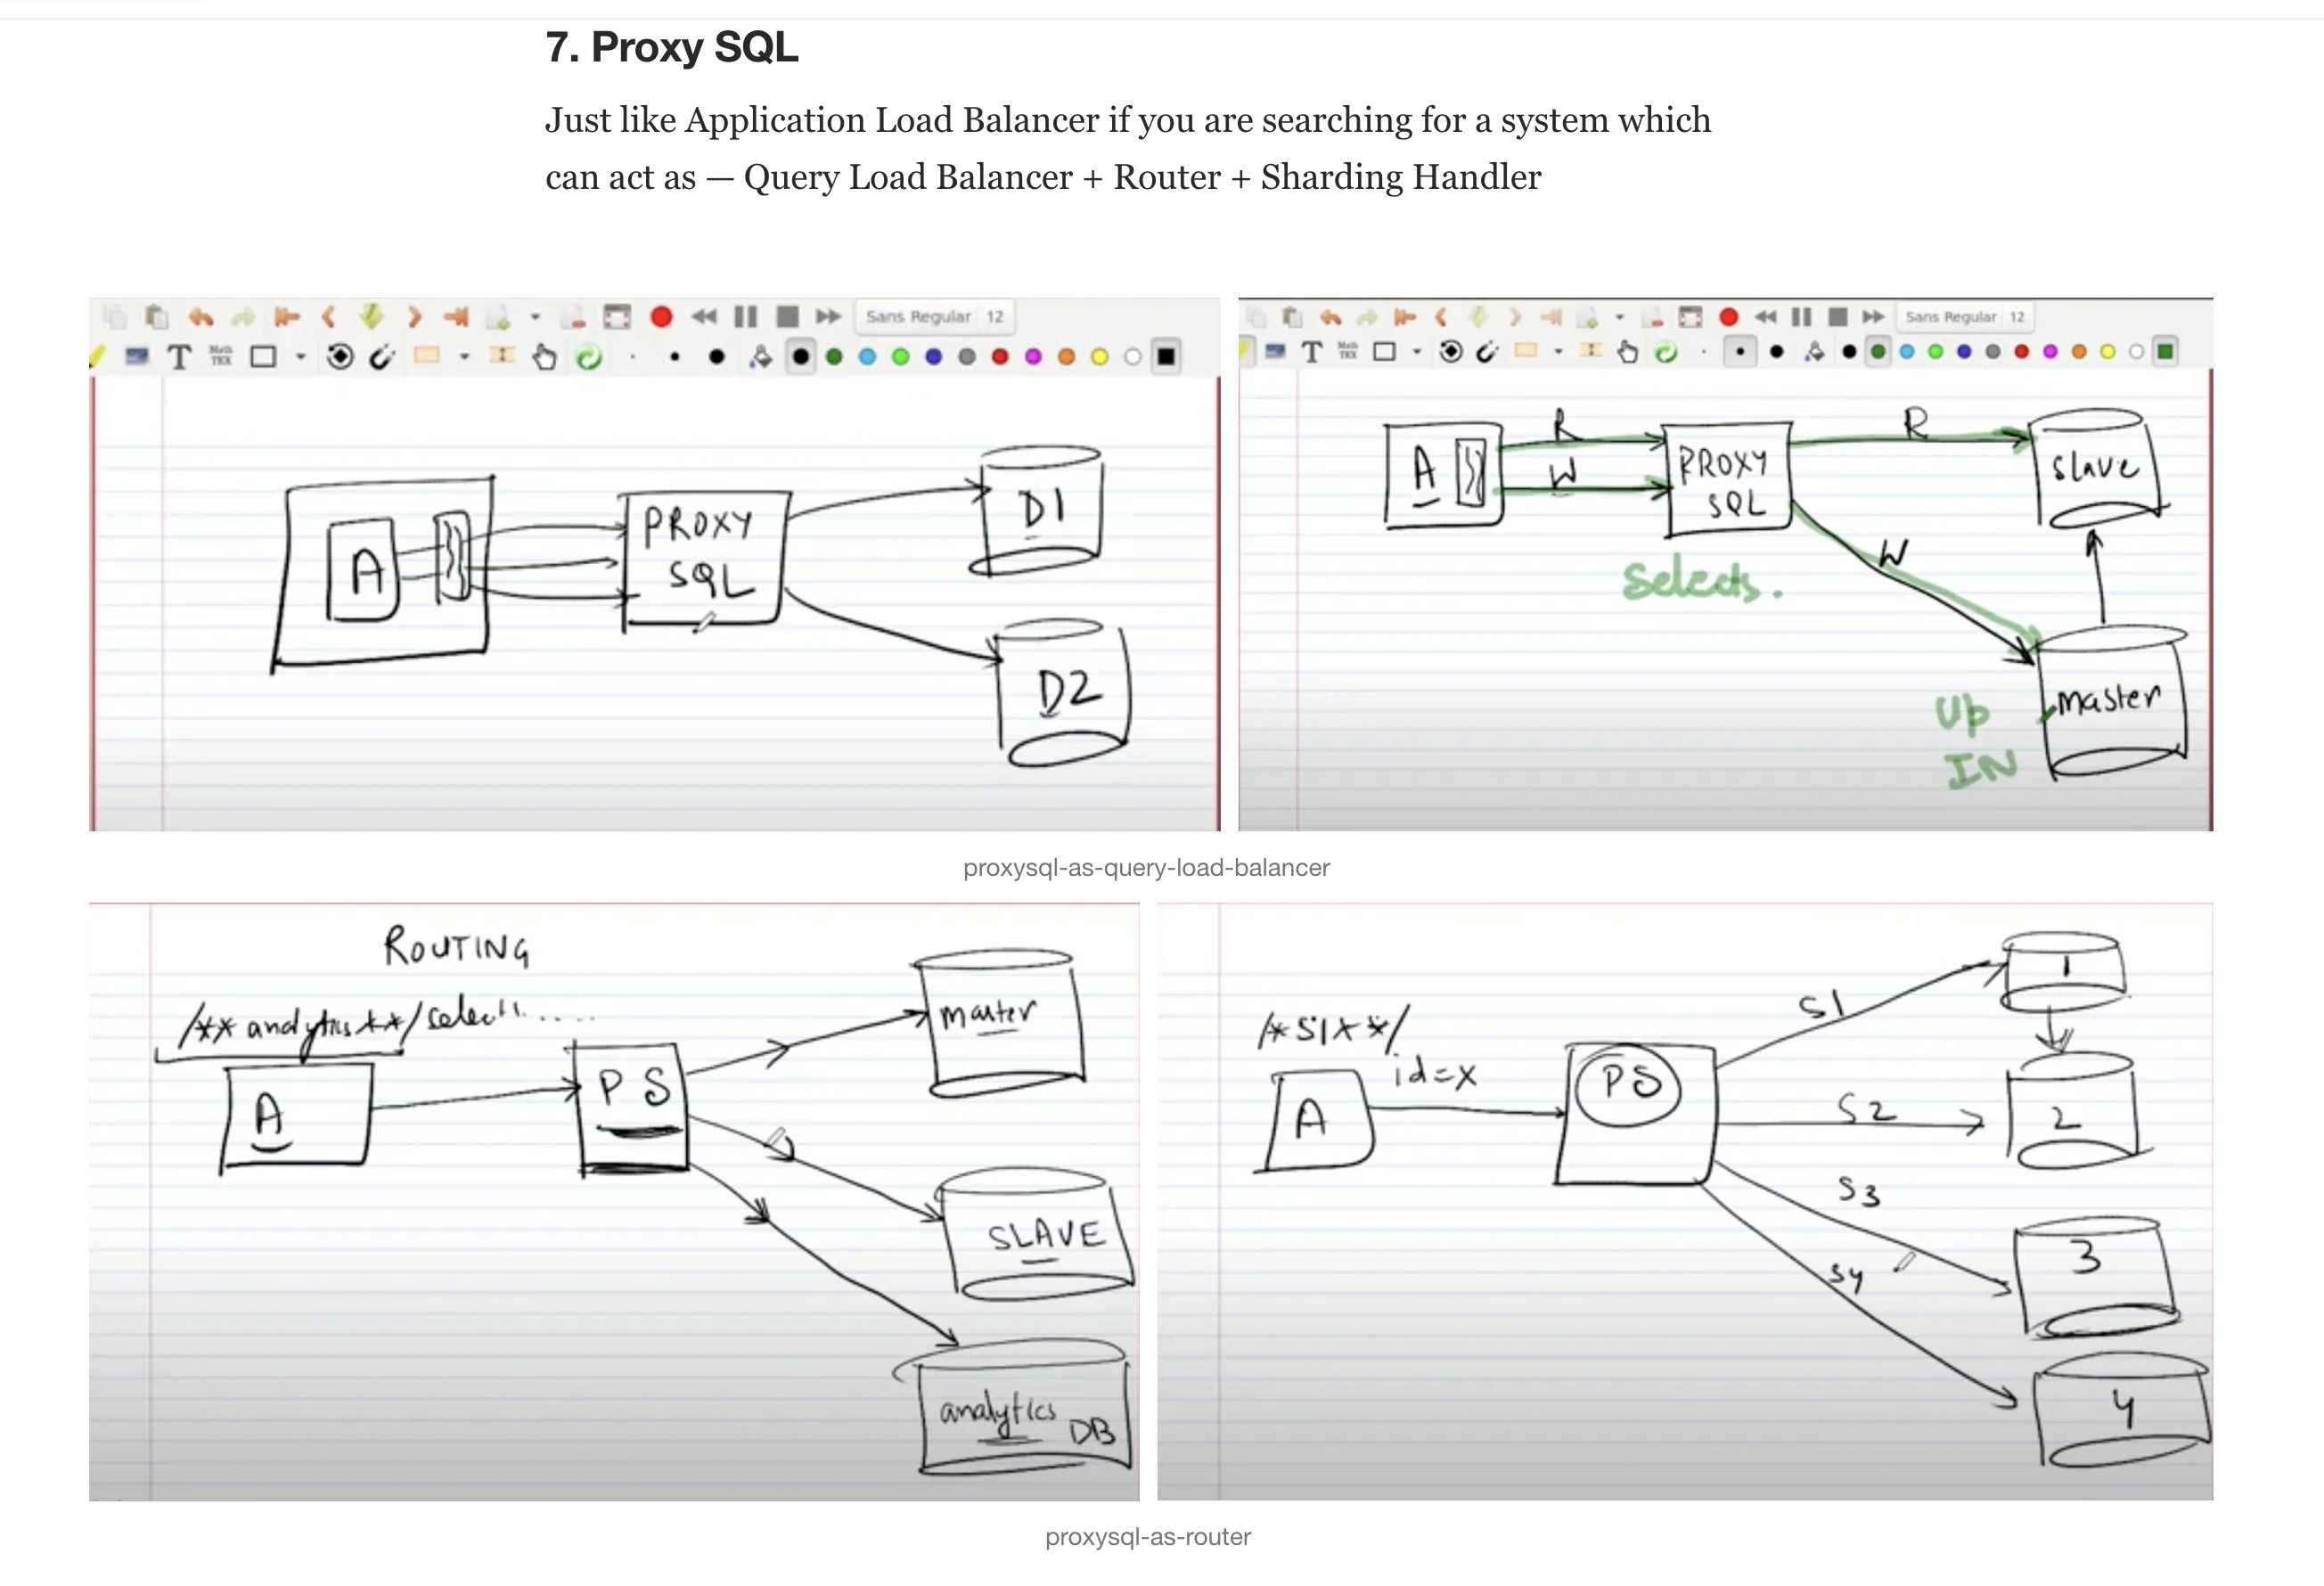 7. Proxy SQL
Just like Application Load Balancer if you are searching for a system which
can act as — Query Load Balancer + Router + Sharding Handler
Sans Regular 12
T
Math
TEX
A
PROXY
SQL
D1
D2
Sans Regular 12
T
Math
TEX
A
R
W
PROXY
SQL
R
W
slave
Selects.
master
Up
IN
proxysql-as-query-load-balancer
ROUTING
/** analytics **/ select.....
A
PS
master
SLAVE
analytics DB
/*S1**/
id=x
A
PS
S1
S2
S3
S4
1
2
3
4
proxysql-as-router